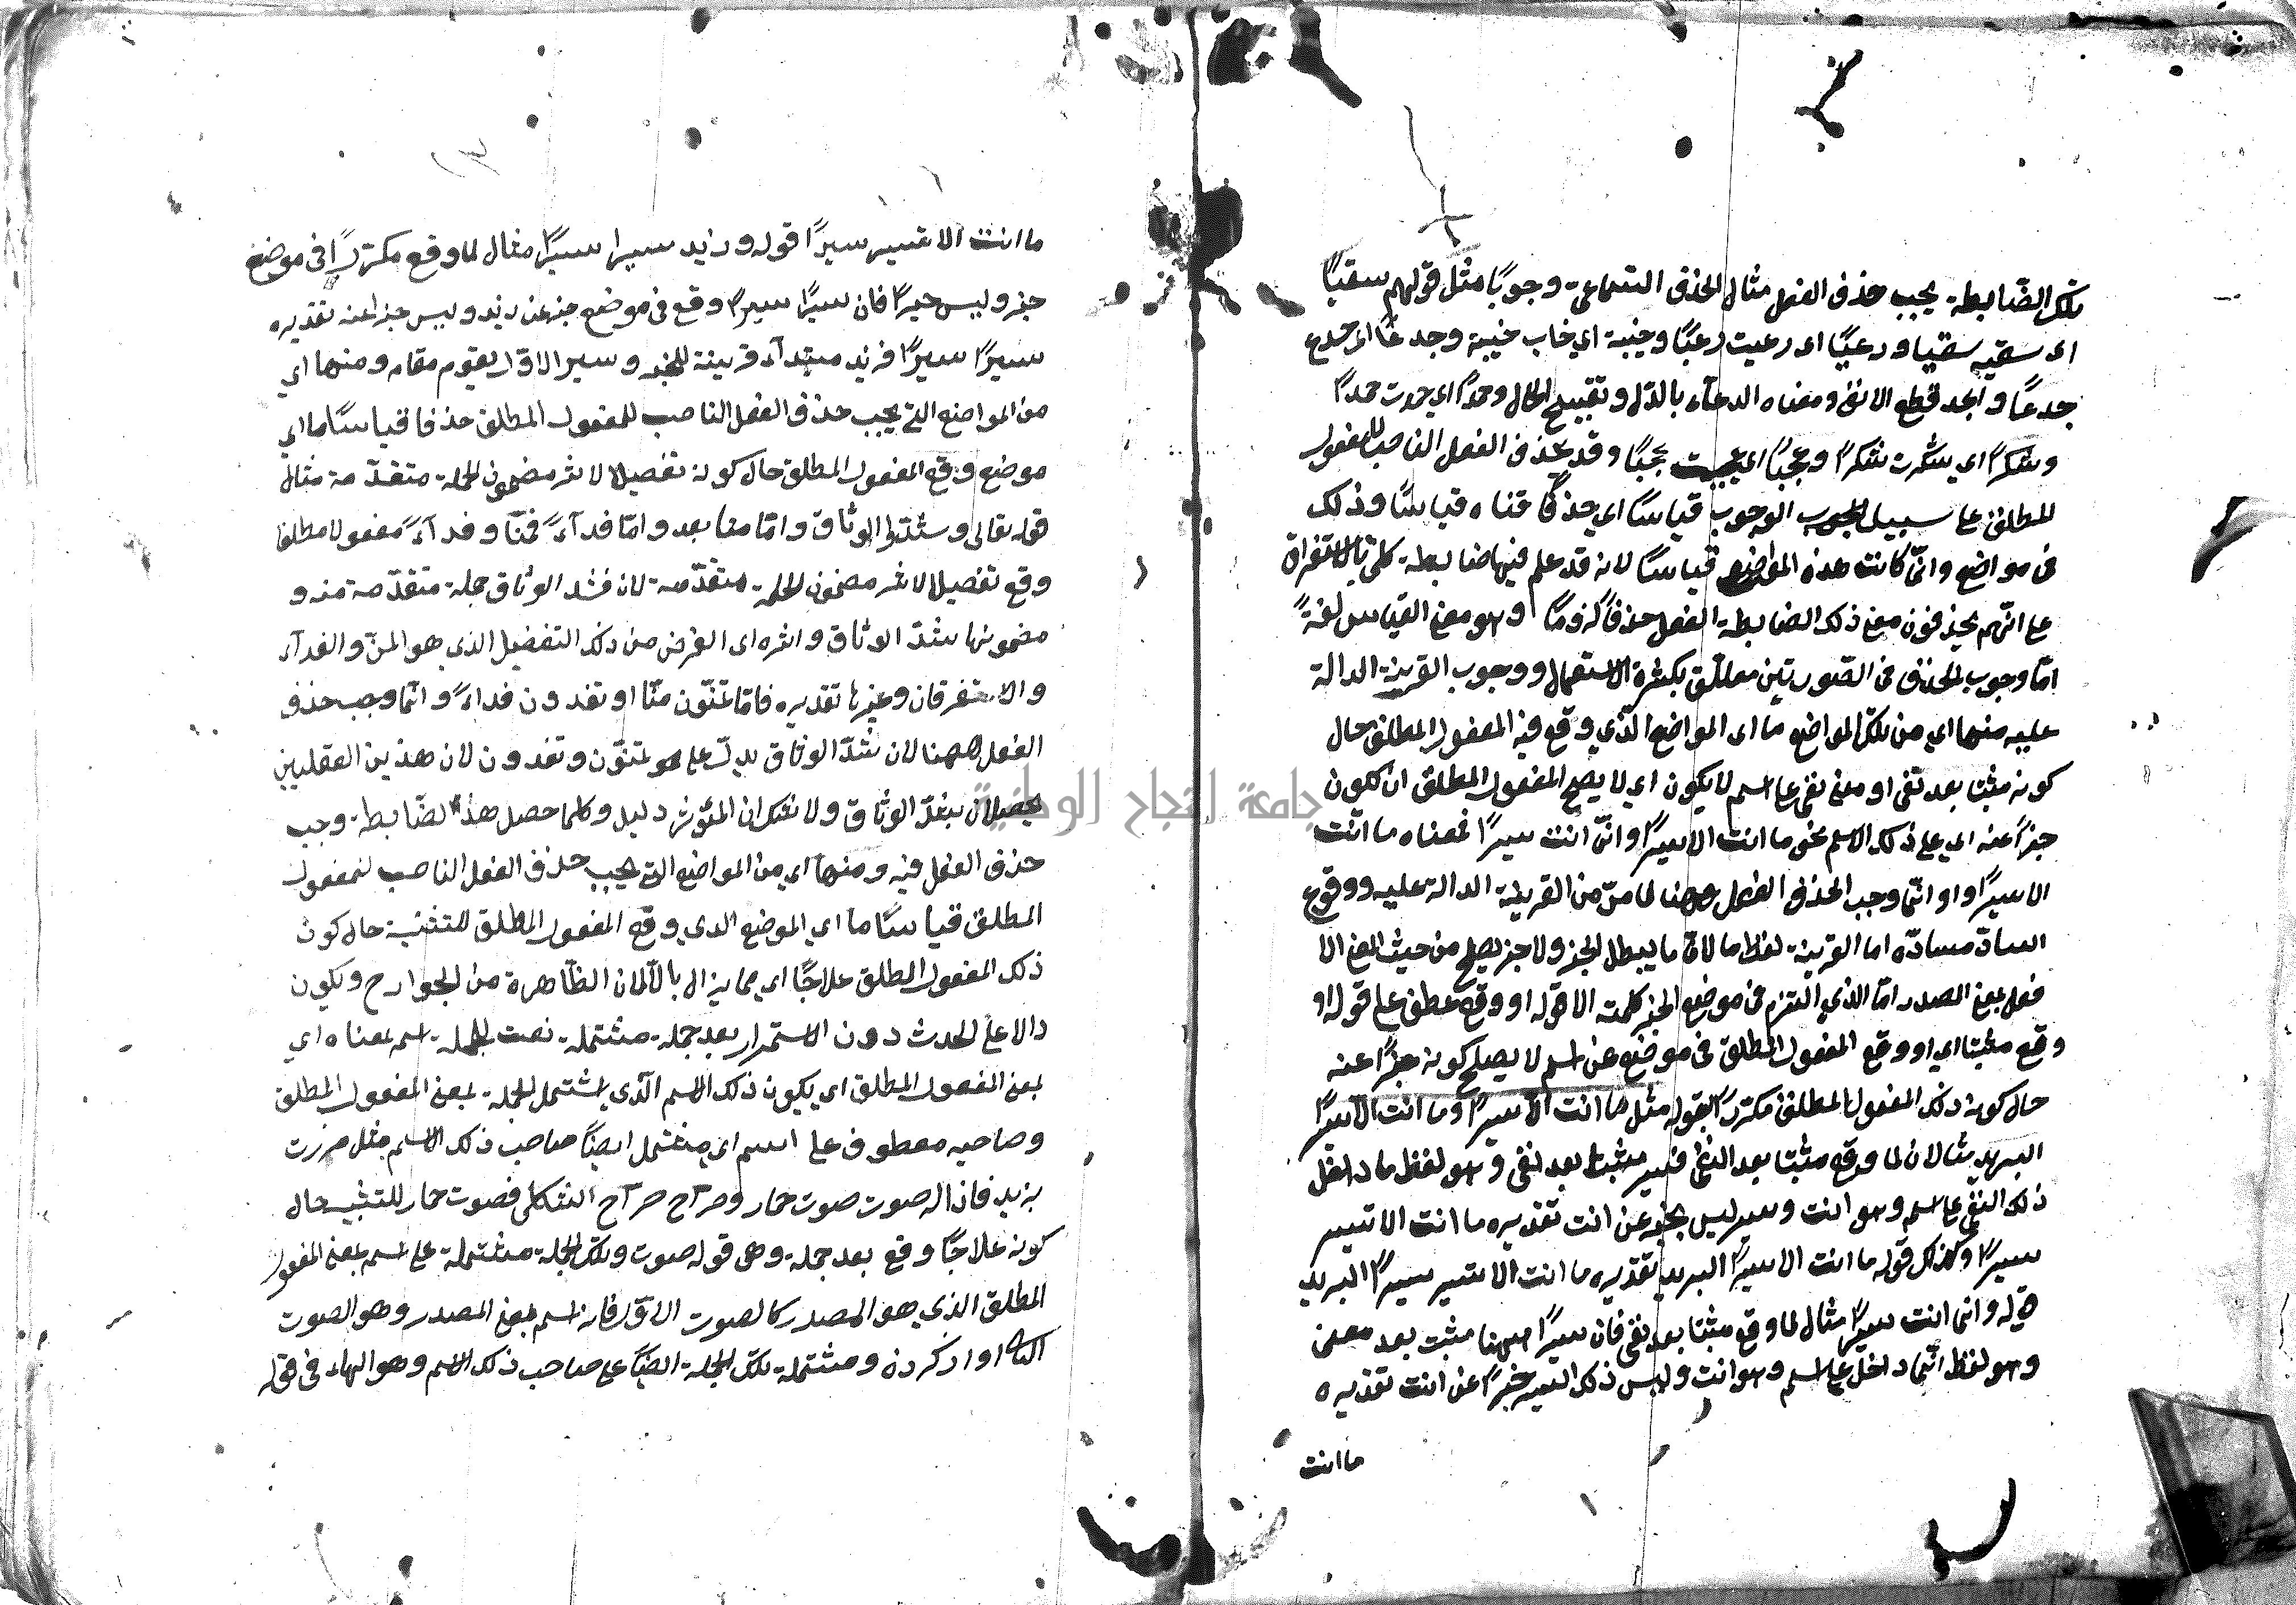 تلك الضابطة يجب حذف الفعل مثال الحذف السماعي وجوبًا مثل قولهم سقيًا
اى سقيه سقيا ورعيًا اى رعيت رعيًا وخيبة اي خاب خيبة وجدعًا اى جدع
جدعًا والجد قطع الانف ومعناه الدعآء بالذل وتقبيح الحال وحمدًا اي حمدت حمدًا
وشكرًا اي شكرت شكرًا وعجبًا اي عجبت عجبًا وقد يحذف الفعل الناصب للمفعول
المطلق على سبيل الوجوب قياسًا اي حذفًا قياسًا وذلك
فى مواضع وانّ كانت هذه المواضع قياسًا لانه قد علم فيها ضابطة كلي بالاستغراق
على انّهم يحذفون معه ذلك الضابطة الفعل حذفًا لزومًا وهو معنى القياس لغةً
امّا وجوب الحذف فى الصّورتين معلّق بكثرة الاستعمال ووجوب القرينة الدالة
عليه منها اي من تلك المواضع ما اى المواضع الّذي وقع فيه المفعول المطلق حال
كونه مثبتا بعد نفى او معنى نفى على اسم لا يكون اي لا يصح المفعول المطلق ان يكون
خبرًا عنه اي على ذلك الاسم نحو ما انت الا سيرًا وانّما انت سيرًا فمعناه ما انت
الا سيرًا وانّما وجب الحذف الفعل ههنا لما مرّ من القرينة الدالة عليه ووقوع
السادّ مسادّه اما القرينة لفظ ما لانّ ما يبطل الخبر ولا خبر يصلح من حيث المعنى الا
فعل بمعنى المصدر امّا الذي التزم فى موضع الخبر كلمة الا قوله او وقع عطف على قوله او
وقع مثبتا اي او وقع المفعول المطلق فى موضع عن اسم لا يصلح كونه خبرًا عنه
حال كونه ذلك المفعول المطلق مكررًا كقوله مثل ما انت الا سيرًا وما انت الا سيرًا
البريد مثالان لما وقع مثبتا بعد النفى فسير مثبت بعد نفى وهو لفظ ما دخل
ذلك النفى على اسم وهو انت وسير ليس بخبر عن انت تقديره ما انت الا تسير
سيرًا وكذلك قوله ما انت الا سيرًا البريد تقديره ما انت الا تسير سيرًا البريد
قوله وانما انت سيرًا مثال لما وقع مثبتا بعد نفى فان سيرًا ههنا مثبت بعد معنى
وهو لفظ انّما دخل على اسم وهو انت وليس ذلك السير خبرًا عن انت تقديره
ما انت
ما انت الا تسير سيرًا قوله وزيد سيرا سيرًا مثال لما وقع مكررًا فى موضع
خبر وليس خبرًا فان سيرًا سيرًا وقع فى موضع خبر عن زيد وليس خبرا عنه تقديره
سيرًا سيرًا فزيد مبتدآء قرينة للخبر وسير الاوّل يقوم مقامه ومنها اي
من المواضع التى يجب حذف الفعل الناصب للمفعول المطلق حذفا قياسًا ما اي
موضع وقع المفعول المطلق حال كونه تفصيلا لاثر مضمون الجملة متقدّمة مثال
قوله تعالى وشدّوا الوثاق وامّا منا بعد وامّا فدآءً فمنّا وفدآءً مفعولا مطلقا
وقع تفصيلا لاثر مضمون الجملة متقدّمة لان فشد الوثاق جملة متقدّمة منه و
مضمونها شدّ الوثاق واثره اى الغرض من ذلك التفضيل الذي هو المنّ والفدآء
والاسترقاق وغيرها تقديره فامّا تمنّون منّا او تفدون فداءً وانّما وجب حذف
الفعل ههنا لان شدّ الوثاق يدلّ على تمنّون وتفدون لان هذين الفعلين
يحصلان بشدّ الوثاق ولا شك ان المؤثر دليل وكلما حصل هذا الضابطة وجب
حذف الفعل فيه ومنها اي من المواضع التى يجب حذف الفعل الناصب لمفعول
المطلق قياسًا ما اي الموضع الذي وقع المفعول المطلق للتشبيه حال كون
ذلك المفعول المطلق علاجًا اي بالآلات الظاهرة من الجوارح ويكون
دالا على الحدث دون الاستمرار بعد جملة مشتملة نعت لجملة اسم بمعناه اي
بمعنى المفعول المطلق اي يكون ذلك الاسم الّذي يشتمل الجملة بمعنى المفعول المطلق
وصاحبه معطوف على اسم اي مشتمل ايضًا صاحب ذلك الاسم مثل مررت
بزيد فاذا له صوت صوت حمار وصراخ صراخ الثكلى فصوت حمار للتشبيه حال
كونه علاجًا وقع بعد جملة وهى قوله صوت وتلك الجملة مشتملة على اسم بمعنى المفعول
المطلق الذي هو المصدر كالصوت الاوّل فانه اسم بمعنى المصدر وهو الصوت
ومشتملة تلك الجملة ايضًا على صاحب ذلك الاسم وهو الهاء فى قوله
جامعة النجاح الوطنية